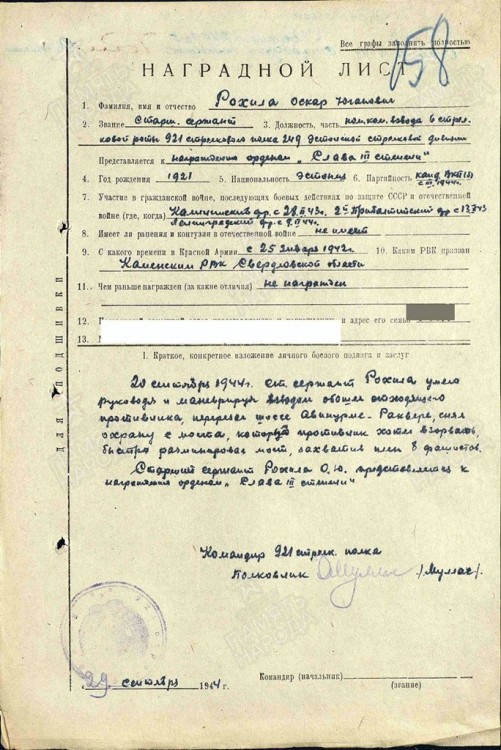 Все графы заполнить полностью
158
НАГРАДНОЙ ЛИСТ
1. Фамилия, имя и отчество Рохила Оскар Юганович
2. Звание Старш. сержант 3. Должность, часть пом. ком. взвода 6 стрел-
ковой роты 921 стрелкового полка 249 Эстонской стрелковой дивизии
Представляется к награждению орденом „Слава III степени"
4. Год рождения 1921 5. Национальность Эстонец 6. Партийность канд. ВКП(б)
1944г.
7. Участие в гражданской войне, последующих боевых действиях по защите СССР и отечественной
войне (где, когда) Калининский фр. с 43г. 2й Прибалтийский фр. с
Ленинградский фр. с 44г.
8. Имеет ли ранения и контузии в отечественной войне не имеет
9. С какого времени в Красной Армии с 25 января 1942г. 10. Каким РВК призван
Каменским РВК Свердловской области
11. Чем ранее награжден (за какие отличия) не награжден
12. и адрес его семьи
13.
I. Краткое, конкретное изложение личного боевого подвига и заслуг
20 сентября 1944г. ст. сержант Рохила умело
руководя и маневрируя взводом обошел отходящего
противника, перерезал шоссе Авинурме-Раквере, снял
охрану с моста, который противник хотел взорвать,
быстро разминировал мост, захватив плен 8 фашистов.
Старший сержант Рохила О.Ю. представляется к
награждению орденом „Слава III степени"
Командир 921 стрелк. полка
Полковник /Муллас/
29 сентября 1944 г.
Командир (начальник)
(звание)
ДЛЯ ПОДШИВКИ
ПАМЯТЬ НАРОДА